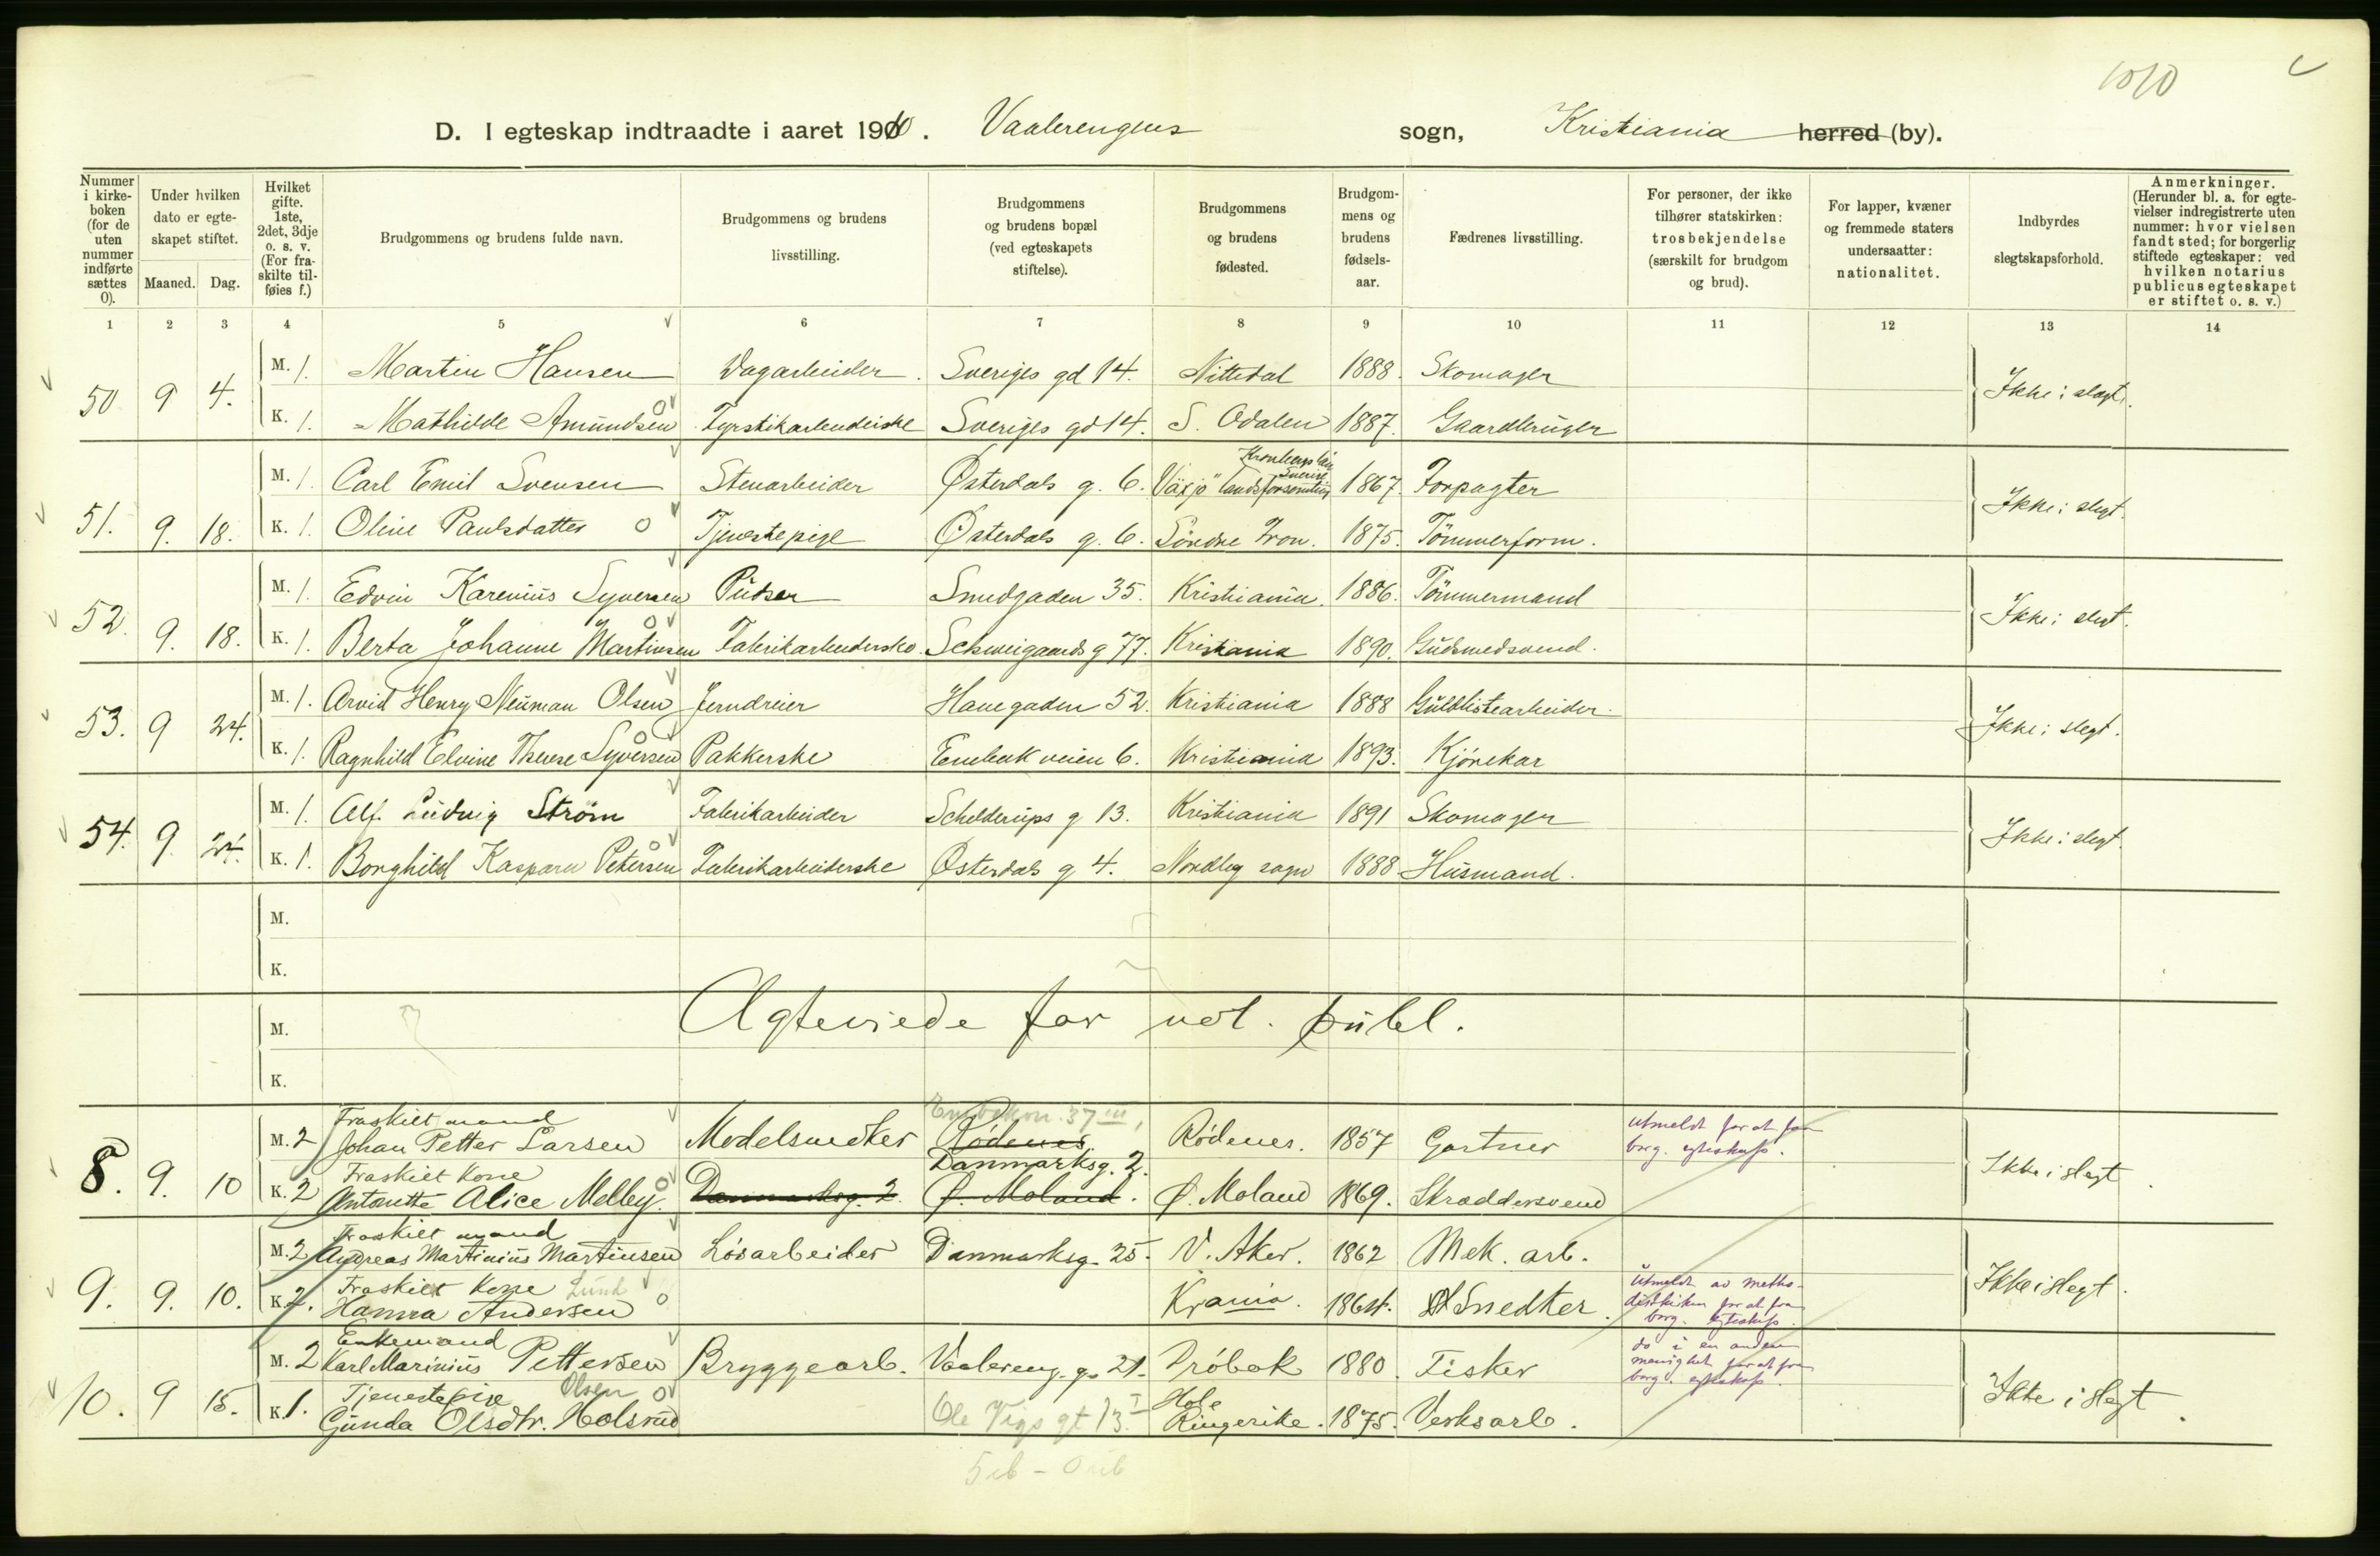 1010
D. I egteskap indtraadte i aaret 1910. Vaalerengens sogn, Kristiania herred (by).
Nummer i kirkeboken (for de uten nummer indførte sættes 0).
Under hvilken dato er egteskapet stiftet.
Maaned. Dag.
Hvilket gifte. 1ste, 2det, 3dje o. s. v. (For fraskilte tilføies f.)
Brudgommens og brudens fulde navn.
Brudgommens og brudens livsstilling.
Brudgommens og brudens bopæl (ved egteskapets stiftelse).
Brudgommens og brudens fødested.
Brudgommens og brudens fødselsaar.
Fædrenes livsstilling.
For personer, der ikke tilhører statskirken: trosbekjendelse (særskilt for brudgom og brud).
For lapper, kvæner og fremmede staters undersaatter: nationalitet.
Indbyrdes slegtskapsforhold.
Anmerkninger. (Herunder bl. a. for egtevielser indregistrerte uten nummer: hvor vielsen fandt sted; for borgerlig stiftede egteskaper: ved hvilken notarius publicus egteskapet er stiftet o. s. v.)
1 2 3 4 5 6 7 8 9 10 11 12 13 14
50 9 4. M. 1. Martin Hansen Dagarbeider Sveriges gd 14. Nittedal 1888. Skomager Ikke i slegt.
K. 1. Mathilde Amundsen Fyrstikarbeiderske Sveriges gd 14. S. Odalen 1887. Gaardbruger
51. 9. 18. M. 1. Carl Emil Svensen Stenarbeider Østerdals g. 6. Växjö landsförsamling Kronbergs län Sverige 1867. Forpagter Ikke i slegt.
K. 1. Oline Paulsdatter Tjenestepige Østerdals g. 6. Söndre Fron. 1875. Tömmerform.
52. 9. 18. M. 1. Edvin Karenius Syversen Pudser Smedgaden 35. Kristiania. 1886. Tömmermand Ikke i slegt.
K. 1. Berta Johanne Martinsen Fabrikarbeiderske Schweigaards g 77. Kristiania 1890. Guldsmedsvend.
53. 9 24. M. 1. Arvid Henry Neuman Olsen Jerndreier Havegaden 52. Kristiania 1888 Guldlistearbeider. Ikke i slegt.
K. 1. Ragnhild Elvine Therese Syversen Pakkerske Enebak veien 6. Kristiania 1893. Kjörekar
54. 9. 24. M. 1. Alf Ludvig Strøm Fabrikarbeider Schelderups g 13. Kristiania 1891 Skomager Ikke i slegt.
K. 1. Borghild Kaspara Petersen Fabrikarbeiderske Østerdals g 4. Nordby sogn 1888. Husmand.
M.
K.
M. Ægteviede for not. publ.
K.
8. 9. 10 M. 2 Fraskilt mand Johan Petter Larsen Modelsnedker Rödenes. 37 III, Rödenes. 1857 Gartner Utmeldt for at faa borg. egteskap. Ikke i slegt.
K. 2 Fraskilt kone Antonette Alice Melby. Danmarksg. 2. Danmarksg. 2. Ø. Moland. Ø. Moland 1869. Skræddersvend
9. 9. 10. M. 2 Fraskilt mand Andreas Martinius Martinsen Løsarbeider Danmarksg. 25. V. Aker. 1862 Mek. arb. Ikke i slegt.
K. 2. Fraskilt kone Hanna Andersen Lund Krania. 1864. Snedker. Utmeldt av methodistkirken for at faa borg. egteskap.
10. 9 15. M. 2 Enkemand Karl Marinius Pettersen Bryggearb. Vaalereng. g. 21. Dröbak 1880. Fisker do i en anden menighet for at faa borg. egteskap. Ikke i slegt.
K. 1. Tjenestepige Gunda Olsdtr. Holsrud Olsen Ole Vigs gt 13. I Hole Ringerike. 1875. Verksarb.